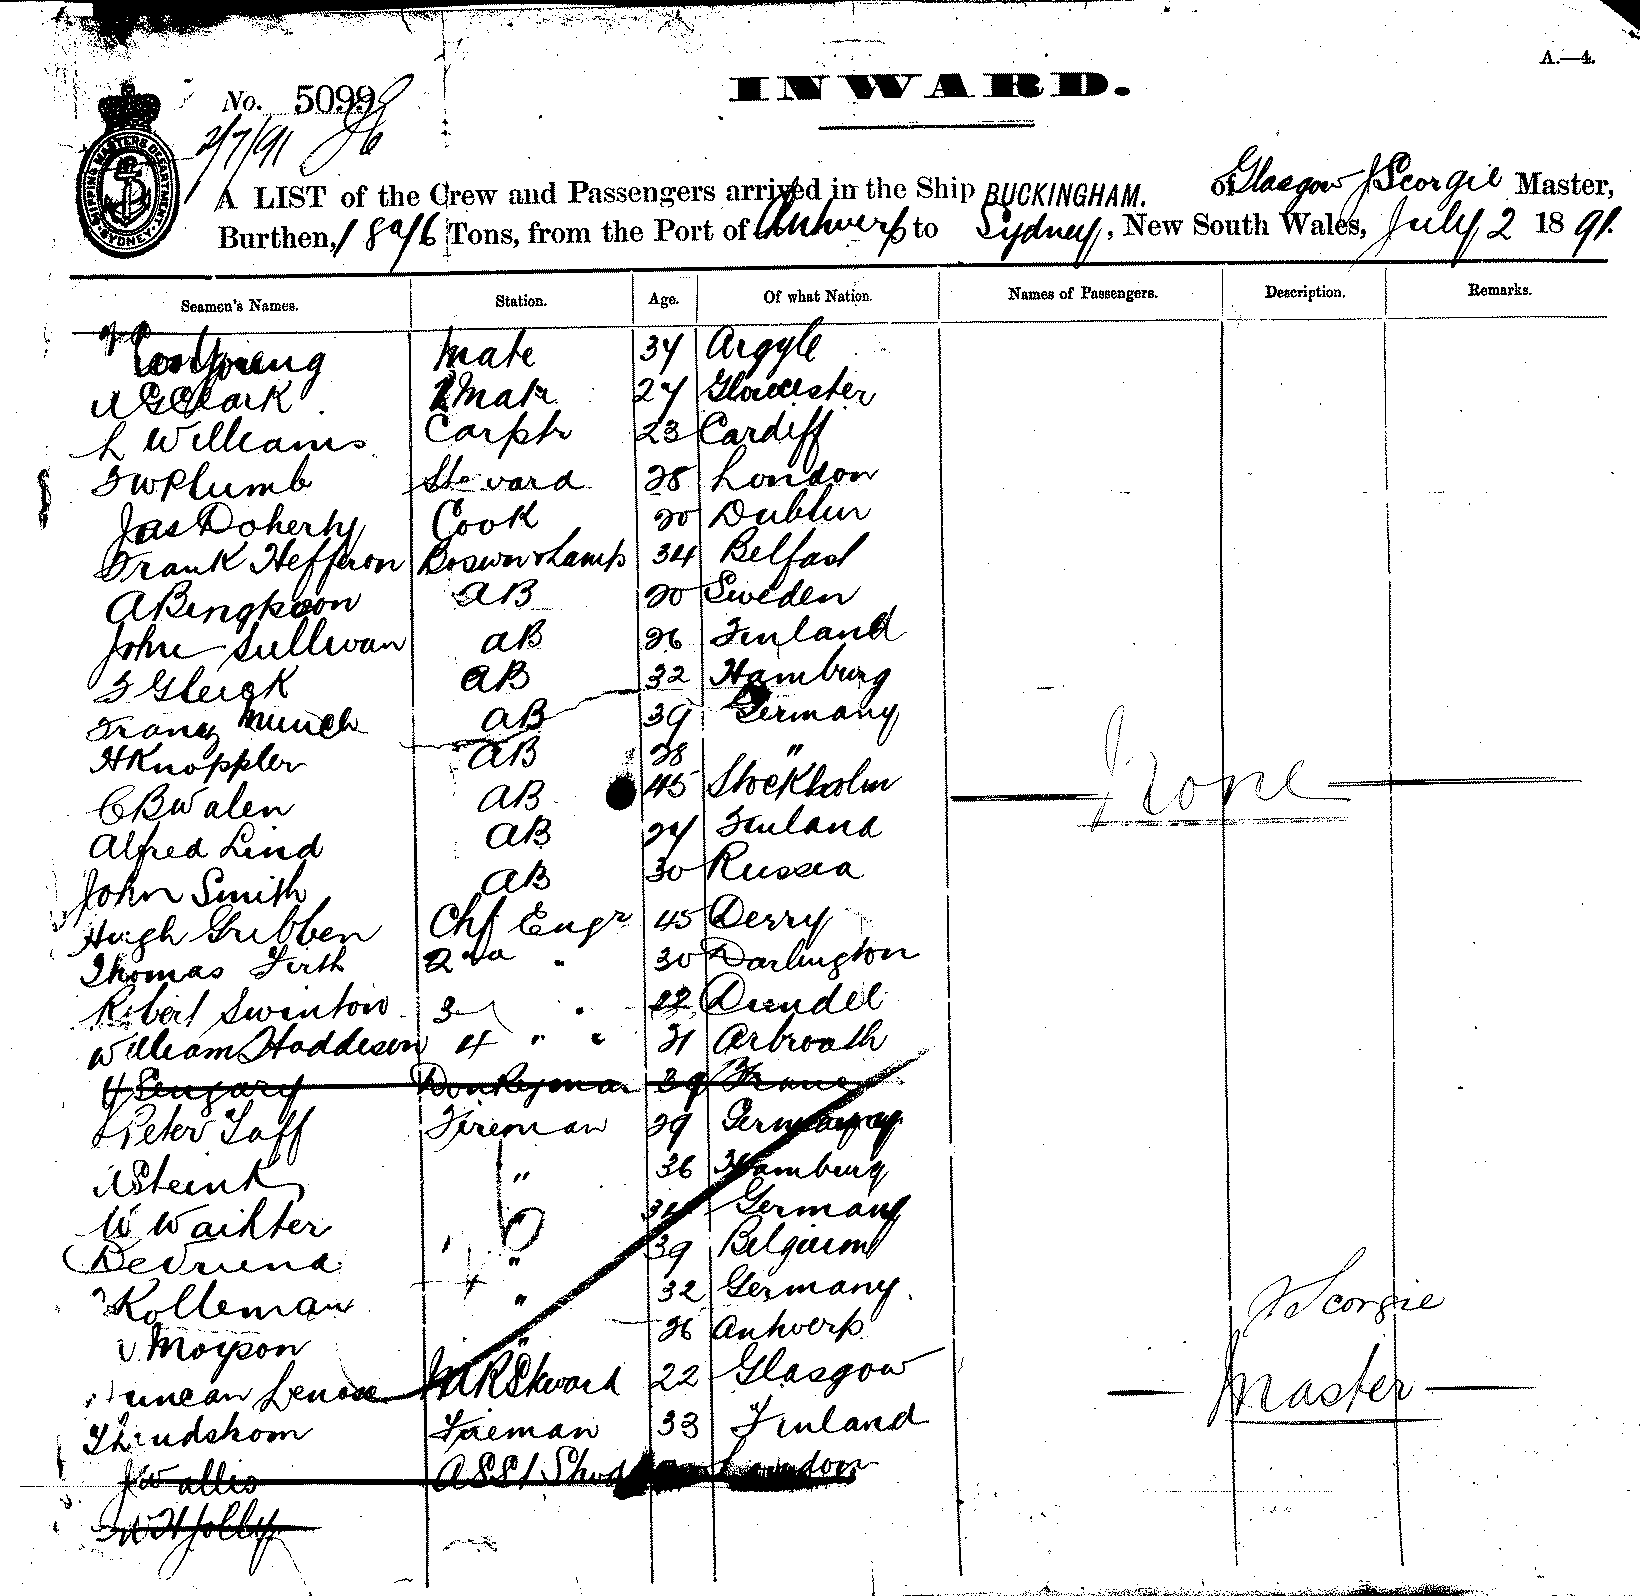 A.—4.
INWARD.
No. 5099
2/7/91
SHIPPING MASTERS DEPARTMENT SYDNEY
A LIST of the Crew and Passengers arrived in the Ship BUCKINGHAM. of Glasgow J Scorgie Master,
Burthen, Tons, from the Port of Antwerp to Sydney, New South Wales, July 2 1891.
Seamen's Names. Station. Age. Of what Nation. Names of Passengers. Description. Remarks.
Young Mate 34 Argyle
A G Clark 2 Mate 27 Gloucester
L Williams Carptr 23 Cardiff
F W Plumb Steward 28 London
Jas Doherty Cook 20 Dublin
Frank Heffron Boswn & Lamps 34 Belfast
A Bengtsson AB 20 Sweden
John Sullivan AB 26 Finland
F Gleick AB 32 Hamburg
Franz Munch AB 39 Germany
H Knoppler AB 28 "
C B Walen AB 45 Stockholm
None
Alfred Lind AB 24 Finland
John Smith AB 30 Russia
Hugh Gribben Chf Engr 45 Derry
Thomas Firth 2nd " 30 Darlington
Robert Swinton 3 " 22 Dundee
William Haddesen 4 " " 21 Arbroath
Donkeyman 39 France
Peter Taff Fireman 29 Germany
A Steink " 36 Hamburg
W Waihter " Germany
" 39 Belgium
Kolleman " 32 Germany
Moyson " 26 Antwerp
J Scorgie
Master
Duncan Lenox M R Steward 22 Glasgow
Lindstrom Fireman 33 Finland
J Wallis Asst Stwd London
W H Jolly